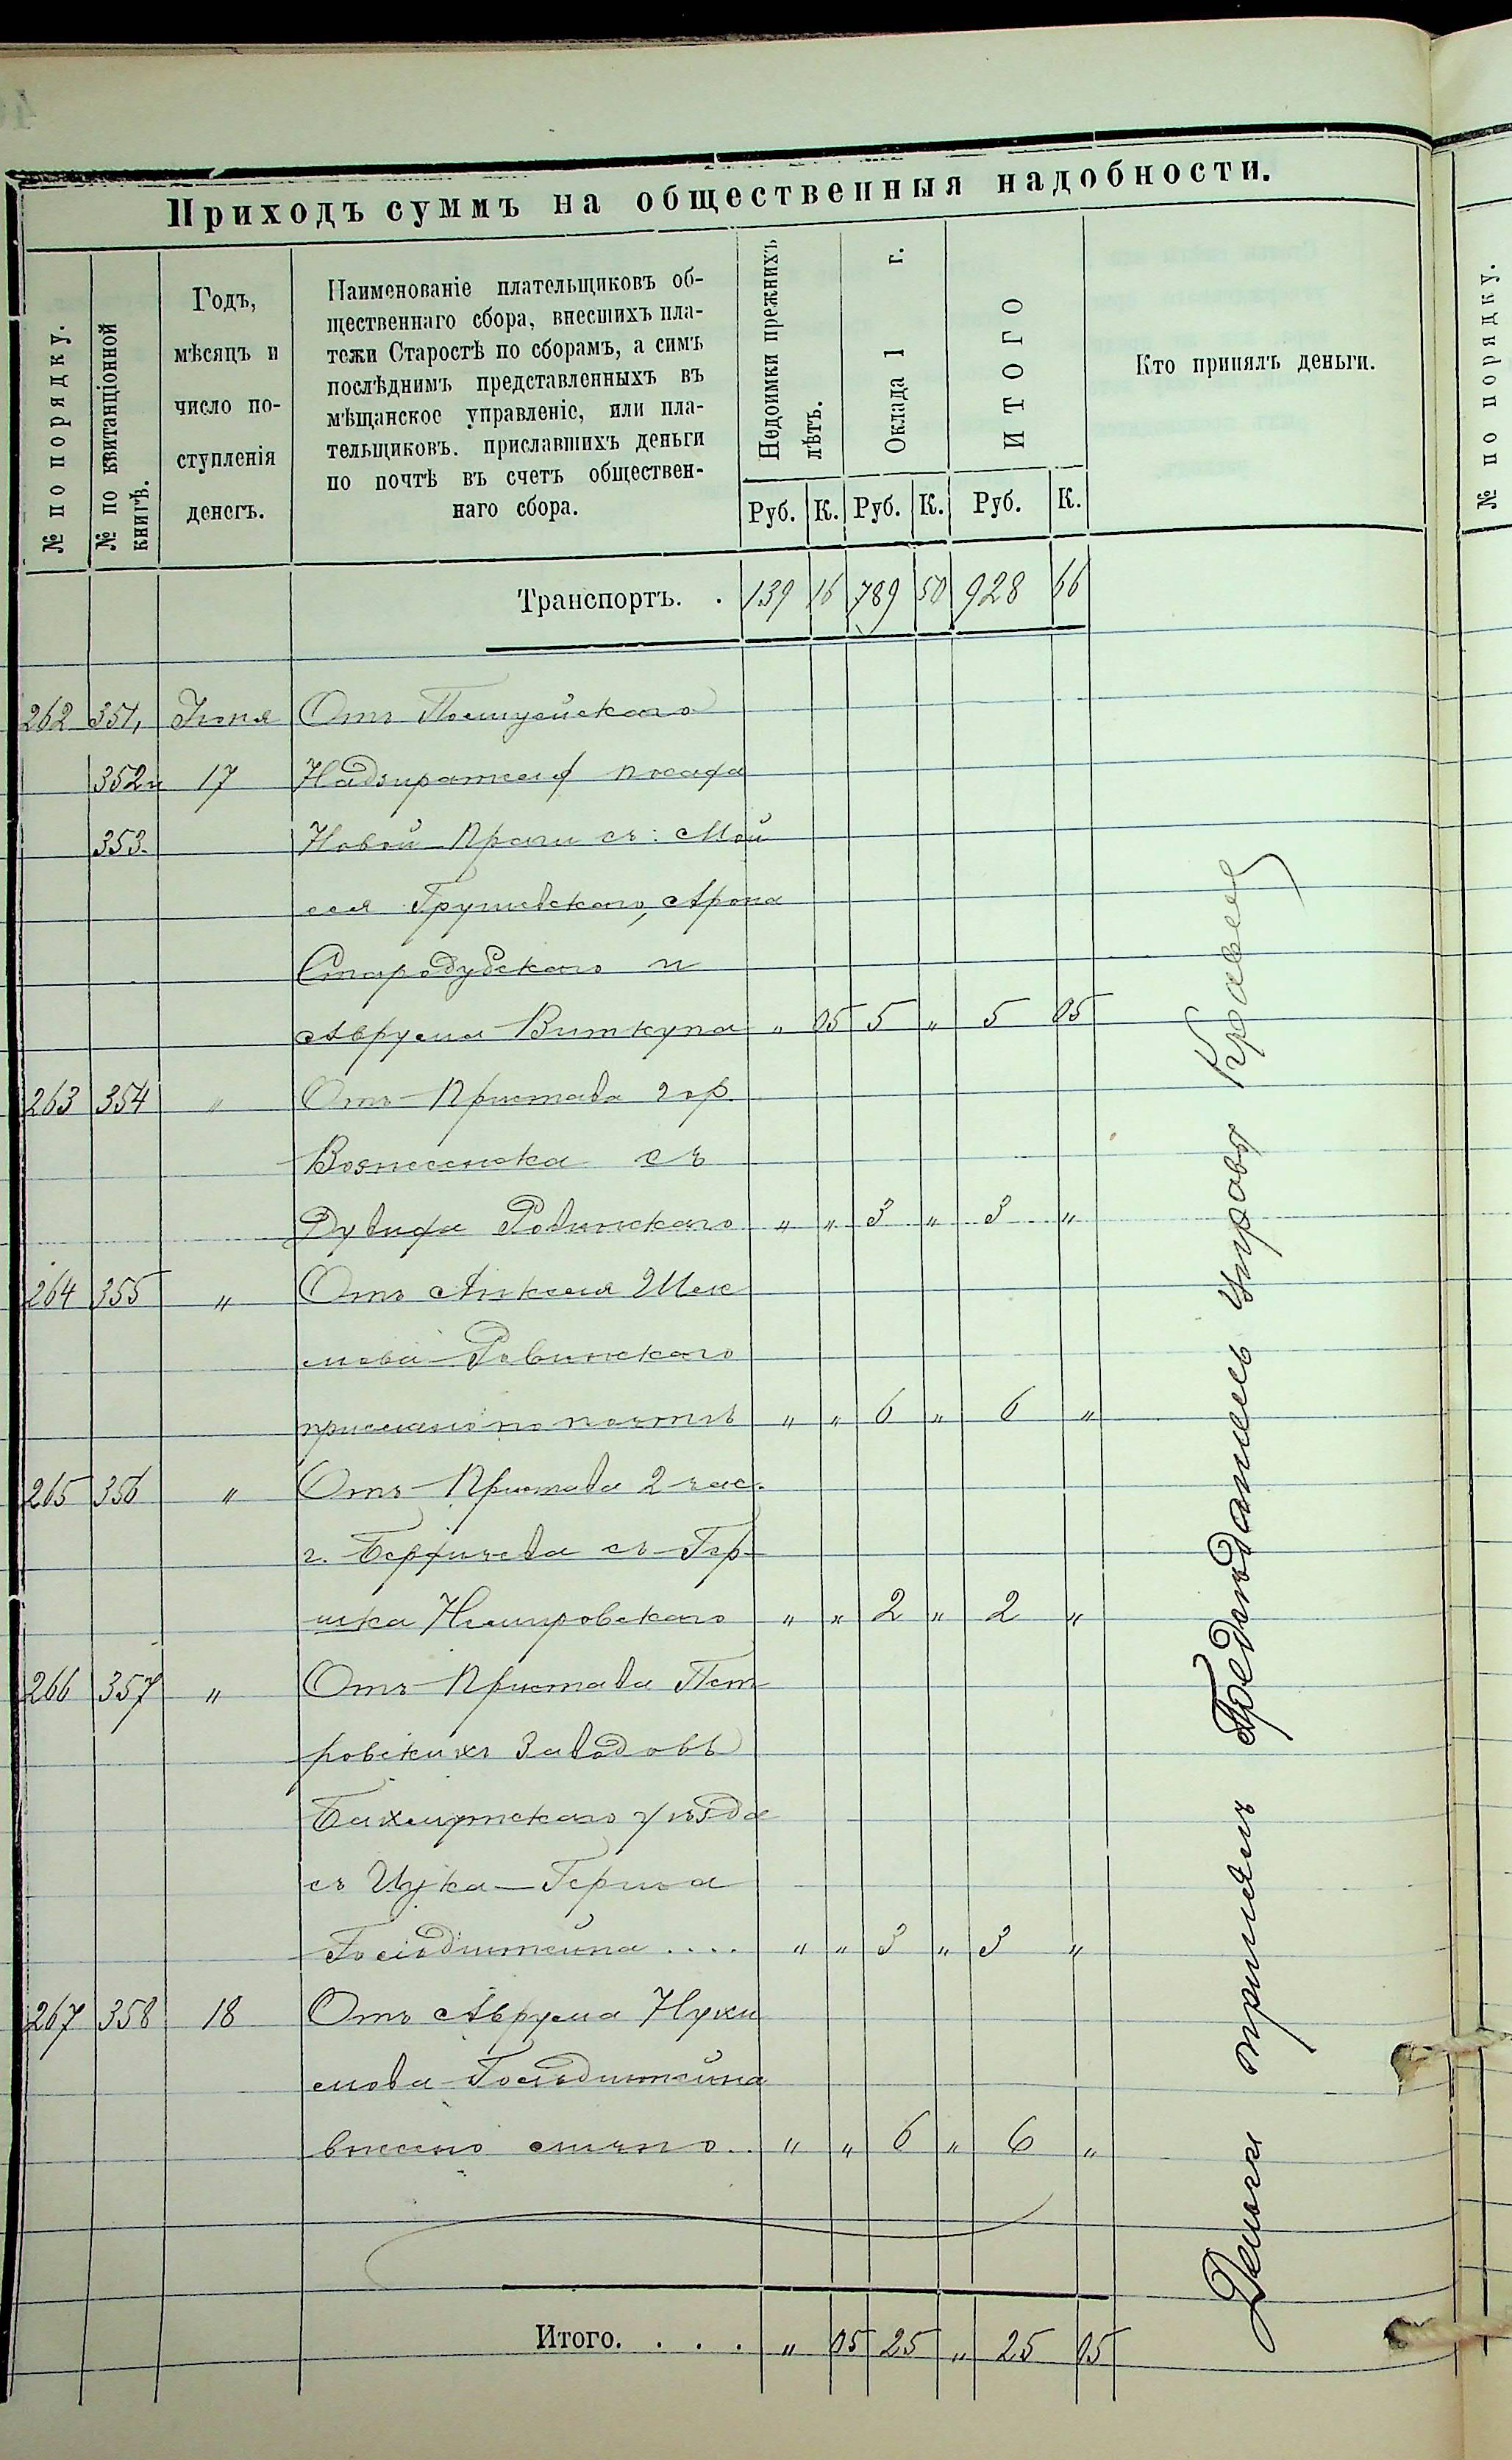 Приходъ суммъ на общественныя надобности.
№ по порядку.
№ по квитанціонной книгѣ.
Годъ,
мѣсяцъ и
число по-
ступленія
денегъ.
Наименованіе плательщиковъ об-
щественнаго сбора, внесшихъ пла-
тежи Старостѣ по сборамъ, а симъ
послѣднимъ представленныхъ въ
мѣщанское управленіе, или пла-
тельщиковъ. приславшихъ деньги
по почтѣ въ счетъ обществен-
наго сбора.
Недоимки прежнихъ лѣтъ.
Оклада 1 г.
ИТОГО
Кто принялъ деньги.
Руб. К. Руб. К. Руб. К.
Транспортъ. . 139 16 789 50 928 66
262 351, Іюня Отъ
352 и 17 Надзирателя посада
353. Новой Праги съ: Мой
сея Грушевскаго, Арона
Стародубскаго и
Аврума Виткупа " 05 5 " 5 05
263 354 " Отъ Пристава гор.
Вознесенска съ
Рувида Ровинскаго " " 3 " 3 "
264 355 " Отъ Анкеля Шле
мова Ровинскаго
прислано по почтѣ " " 6 " 6 "
265 356 " Отъ Пристава 2 час.
г. Бердичева съ Гер-
шка Немировскаго " " 2 " 2 "
266 357 " Отъ Пристава Пет
ровскихъ Заводовъ
Бахмутскаго уѣзда
съ Ицка-Герша
" " 3 " 3 "
267 358 18 Отъ Аврума Нухи
мова
внесено лично.. " " 6 " 6 "
Итого. . . . " 05 25 " 25 05
Деньги принялъ Предсѣдатель Управы Кравец
№ по порядку.